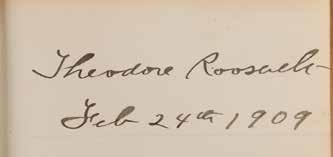 Theodore Roosevelt
Feb 24th 1909